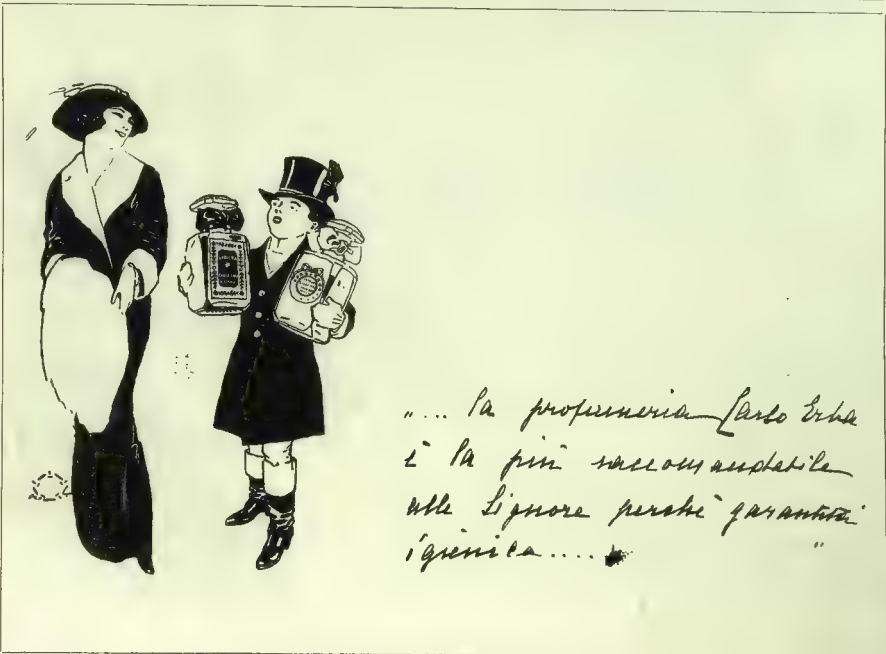 „... la profumeria Carlo Erba
è la più raccomandabile
alle Signore perchè garantita
igienica.... "